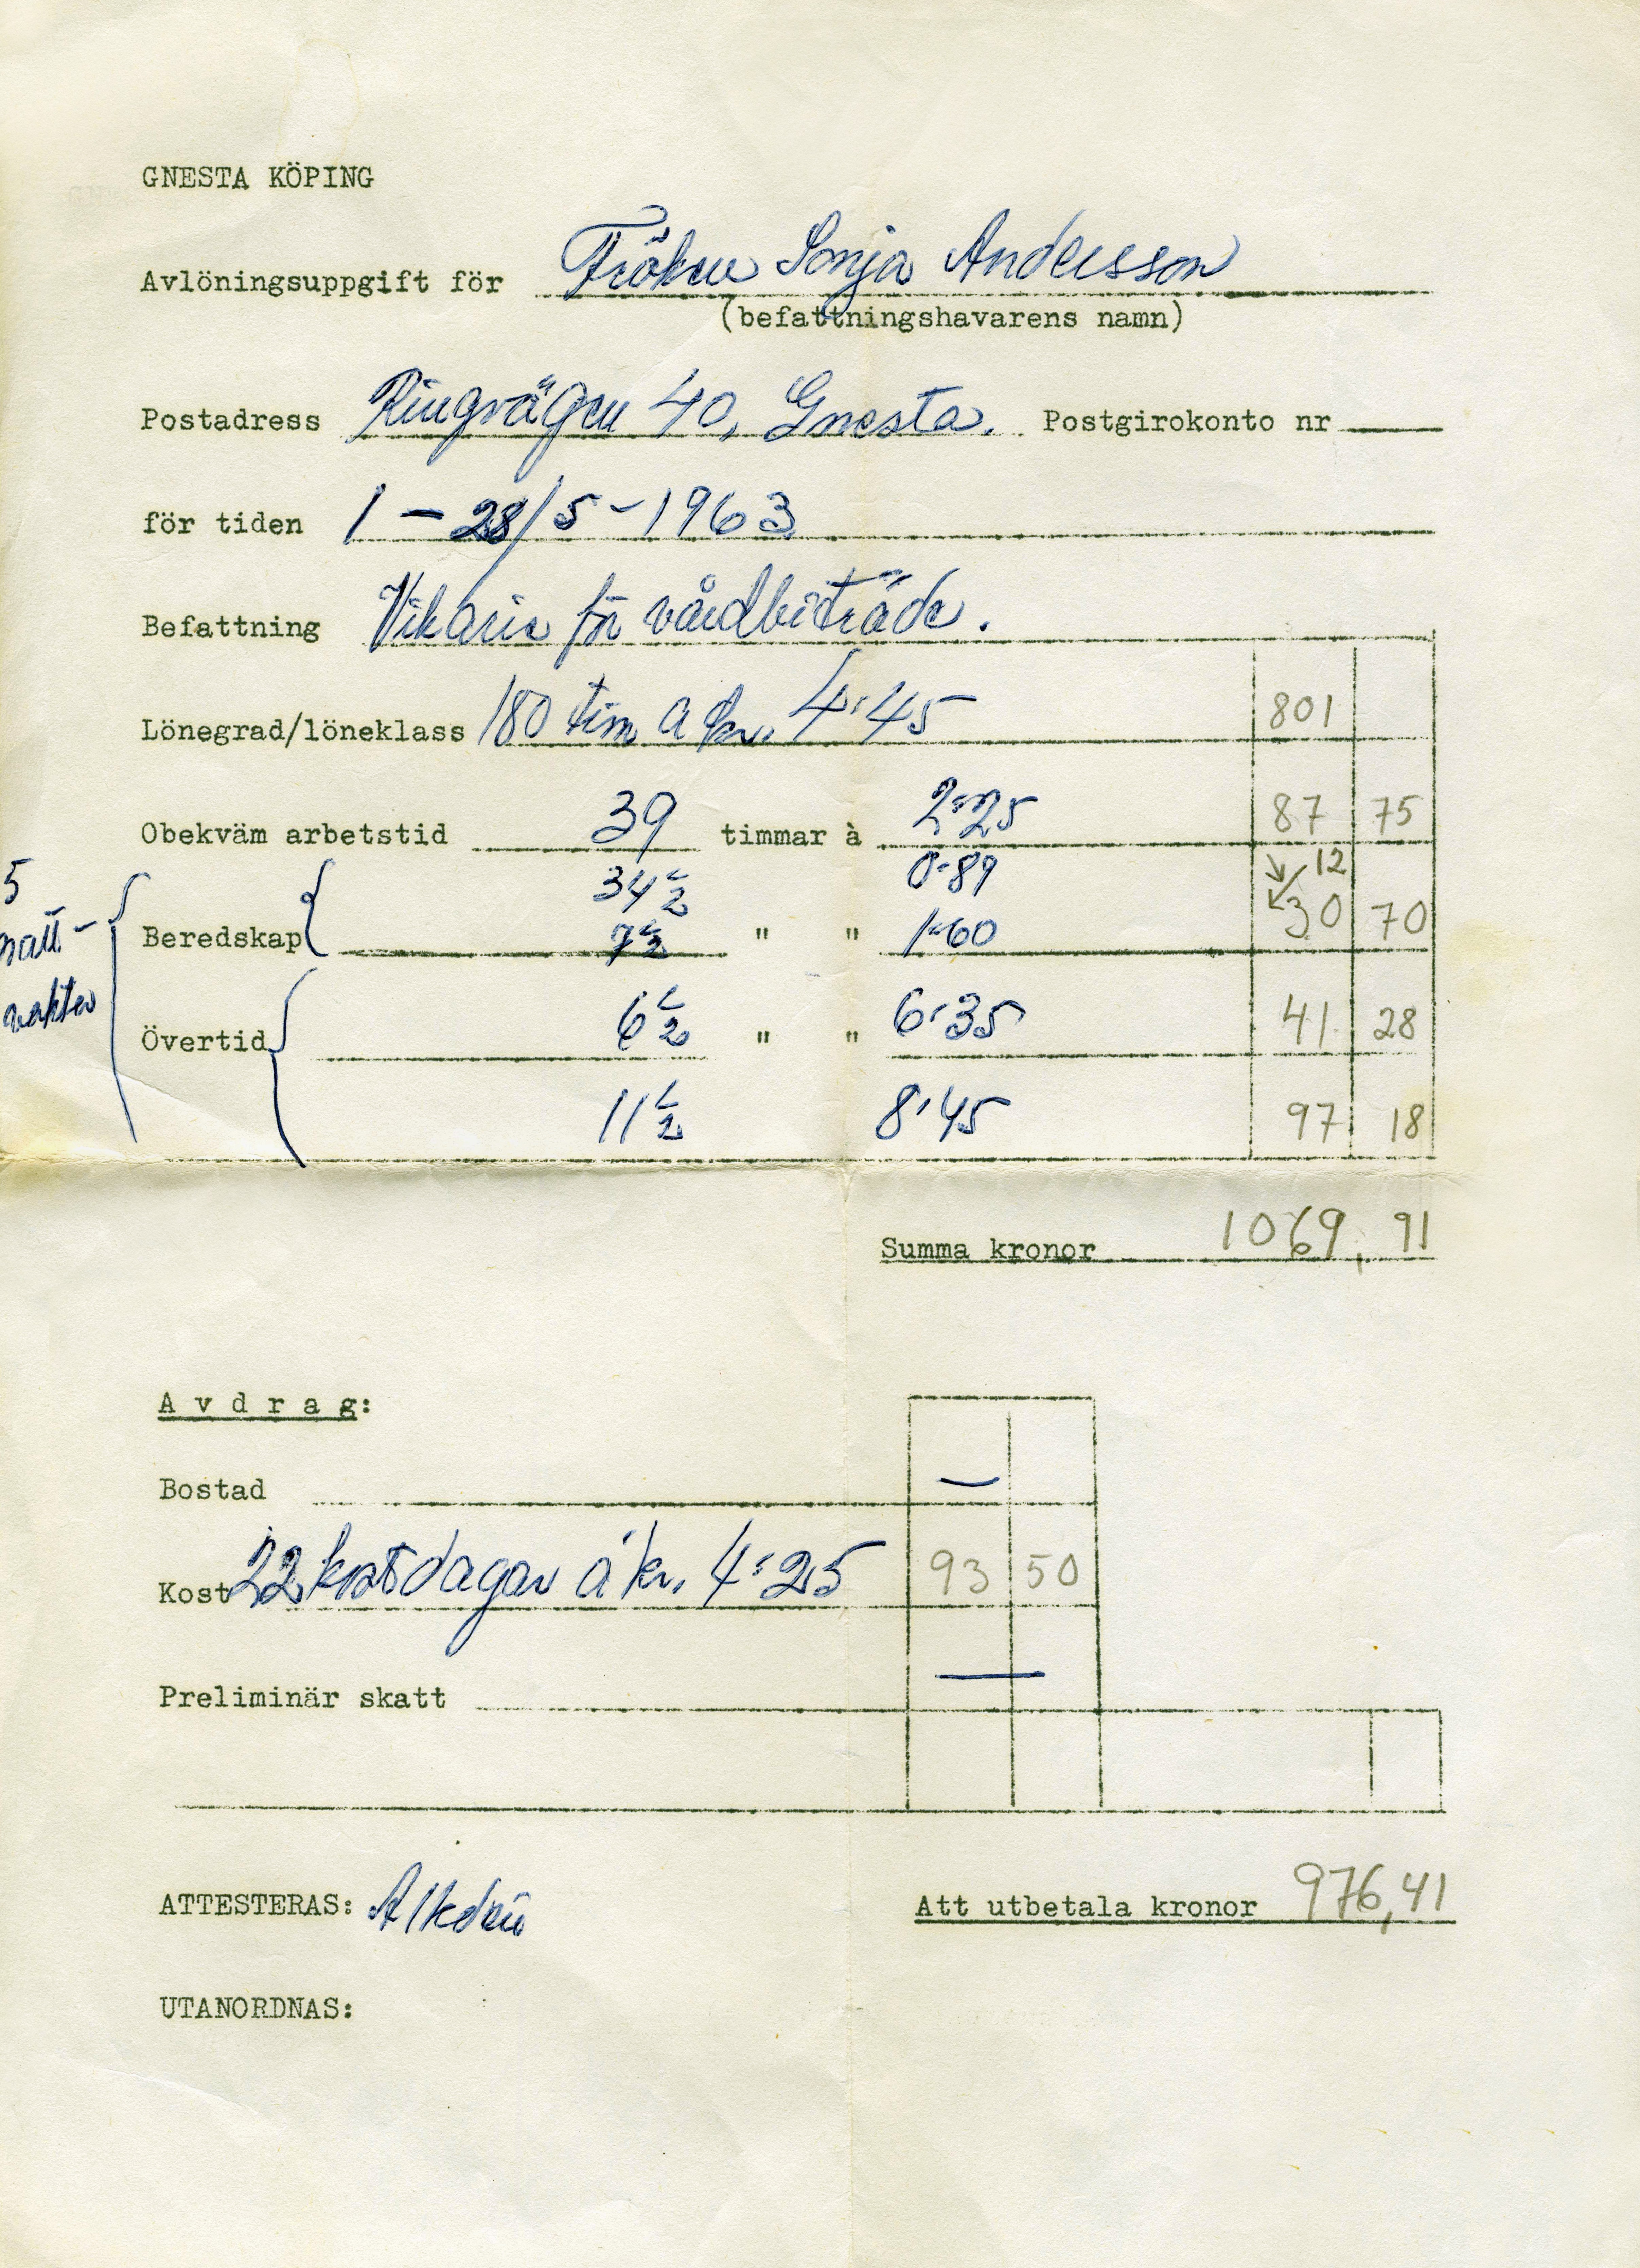 GNESTA KÖPING
Avlöningsuppgift för Fröken Sonja Andersson
(befattningshavarens namn)
Postadress Ringvägen 40, Gnesta. Postgirokonto nr
för tiden 1 – 28/5 – 1963
Befattning Vikarie för vårdbiträde.
Lönegrad/löneklass 180 tim a kr. 4:45 801
Obekväm arbetstid 39 timmar à 2:25 87 75
34 1/2 0:89 12
Beredskap 7 1/2 " " 1:60 30 70
5
natt-
vakter
Övertid 6 1/2 " " 6:35 41 28
11 1/2 8:45 97 18
Summa kronor 1069,91
Avdrag:
Bostad —
Kost 22 kostdagar á kr. 4:25 93 50
Preliminär skatt —
ATTESTERAS: Att utbetala kronor 976,41
UTANORDNAS: